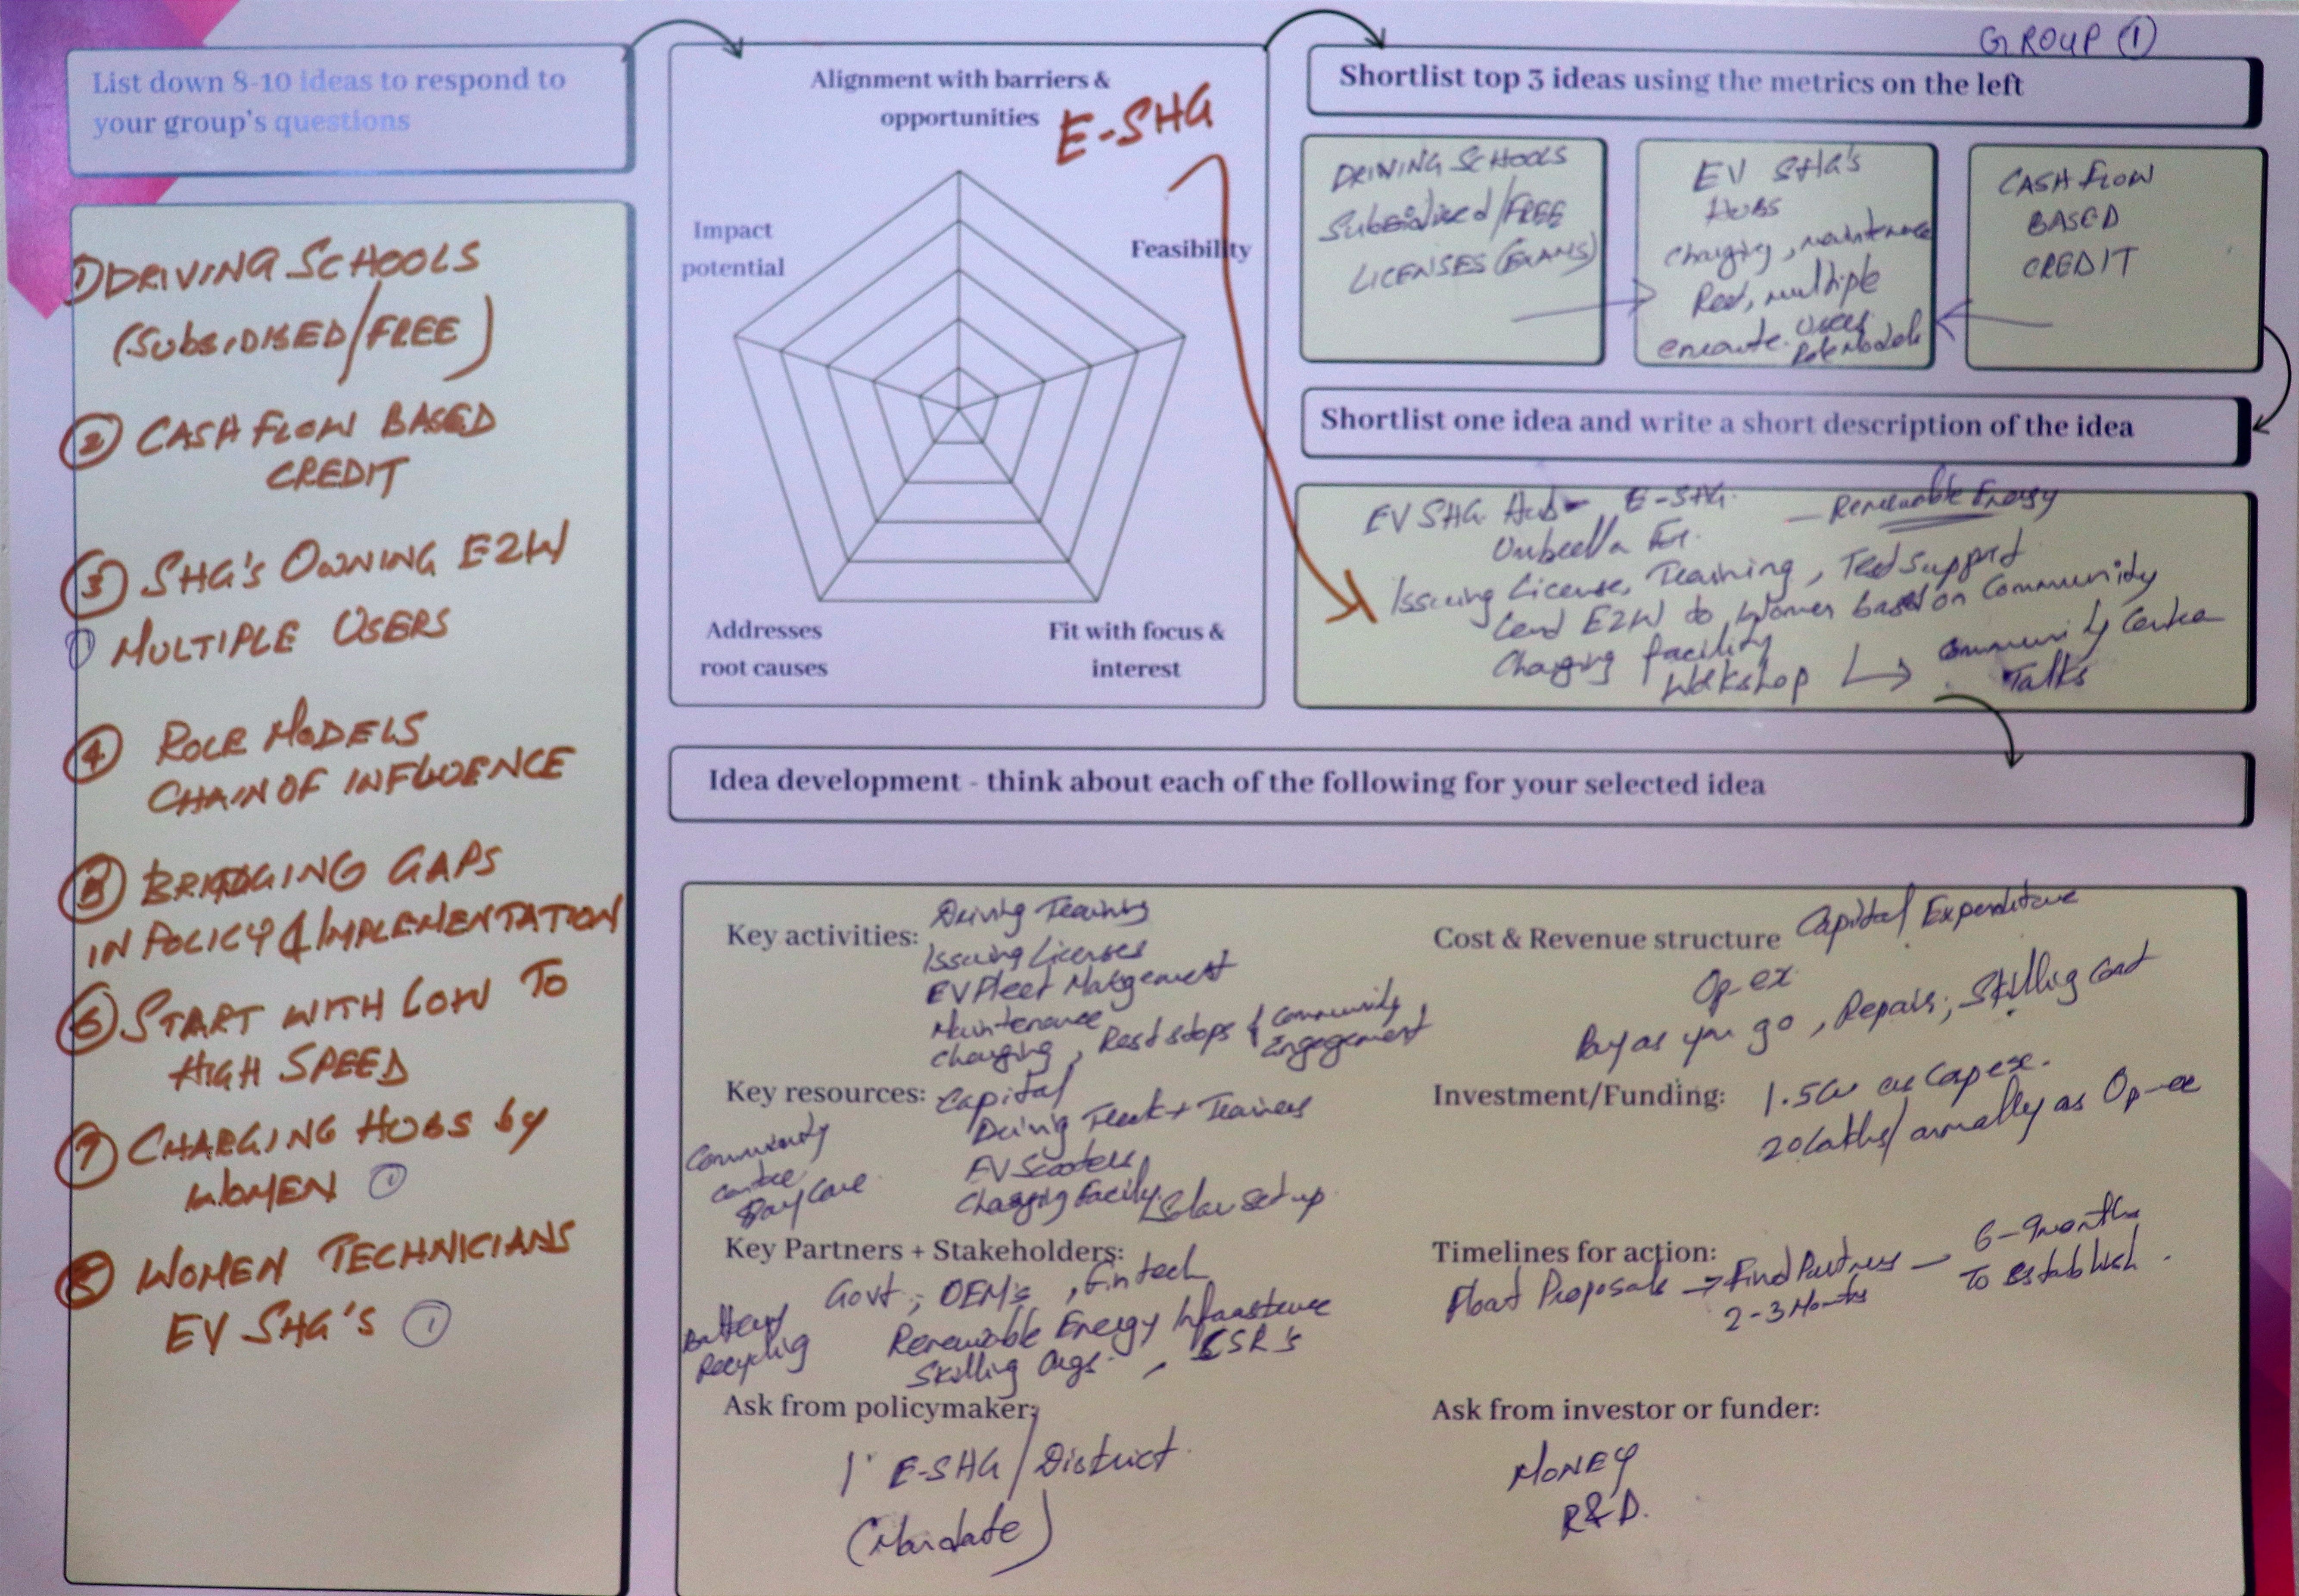 GROUP ①
List down 8-10 ideas to respond to
your group's questions
① DRIVING SCHOOLS
(SUBSIDISED/FREE)
② CASH FLOW BASED
CREDIT
③ SHG's OWNING E2W
① MULTIPLE USERS
④ ROLE MODELS
CHAIN OF INFLUENCE
⑤ BRIDGING GAPS
IN POLICY & IMPLEMENTATION
⑥ START WITH LOW TO
HIGH SPEED
⑦ CHARGING HUBS by
WOMEN ①
⑧ WOMEN TECHNICIANS
EV SHG'S ①
Alignment with barriers &
opportunities
E-SHG
Impact
potential
Feasibility
Addresses
root causes
Fit with focus &
interest
Shortlist top 3 ideas using the metrics on the left
DRIVING SCHOOLS
Subsidised/FREE
LICENSES (EXAMS)
EV SHG's
HUBS
Charging, maintenance
Rest, multiple
enroute. Users
Role Models
CASH FLOW
BASED
CREDIT
Shortlist one idea and write a short description of the idea
EV SHG Hub - E-SHG. — Renewable Energy
Umbrella For.
Issuing License, Training, Test Support
Lend E2W to Women based on Community
Charging facility
Workshop → Community Centre
Talks
Idea development - think about each of the following for your selected idea
Key activities:
Driving Training
Issuing Licenses
EV Fleet Management
Maintenance
Charging, Rest stops & Community
Engagement
Key resources:
Capital
Driving Track + Trainers
EV Scooters
Charging Facility. Solar Set up
Community
Centre
Day Care
Key Partners + Stakeholders:
Govt, OEM's, Fintech
Renewable Energy Infrastructure
Skilling Orgs. , CSR's
Battery
Recycling
Ask from policymaker:
1 E-SHG/District.
(Mandate)
Cost & Revenue structure
Capital Expenditure
Op-ex
Pay as you go, Repairs, Skilling Cost
Investment/Funding:
1.5Cr as Capex.
20 Lakhs/annually as Op-ex
Timelines for action:
Float Proposals → Find Partners — 6-9 months
2-3 Months
To Establish.
Ask from investor or funder:
MONEY
R&D.